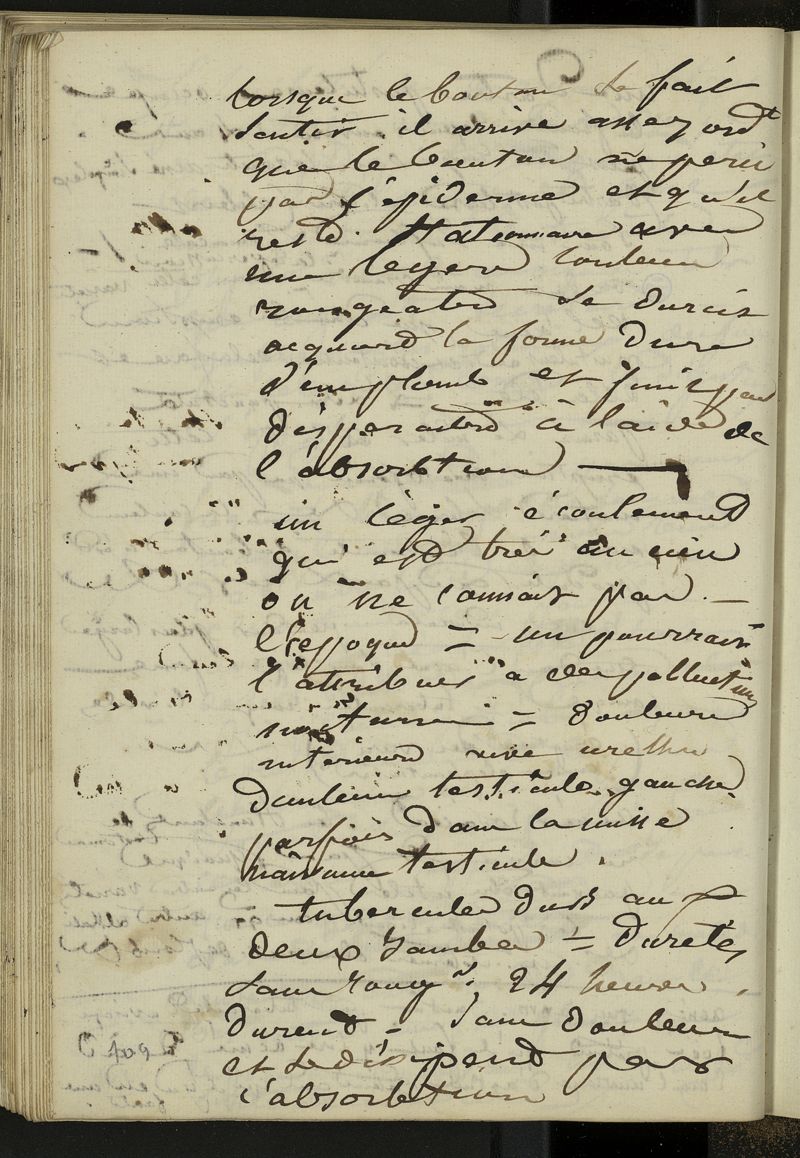 lorsque le bouton se fait
sentir. il arrive assez ordt
que le bouton ne perce
pas l'épiderme et qu'il
reste. stationnaire avec
une legere couleur
rougeatre se durcis
acquierd la forme dure
d'un plomb et finis par
disperaitre à l'aide de
l'absorbtion
un léger écoulement
qui est très ancien
on ne connait pas
l'epoque = on pourrais
l'attribuer a des pollutions
nocturnes = douleurs
interieures urethre
douleur testicule gauche
parfois dans la cuisse
même testicule.
- tubercules durs aux
deux jambes = duretés
sans roug r. 24 heures
durent = sans douleur
et se dissipend par
l'absorbtion